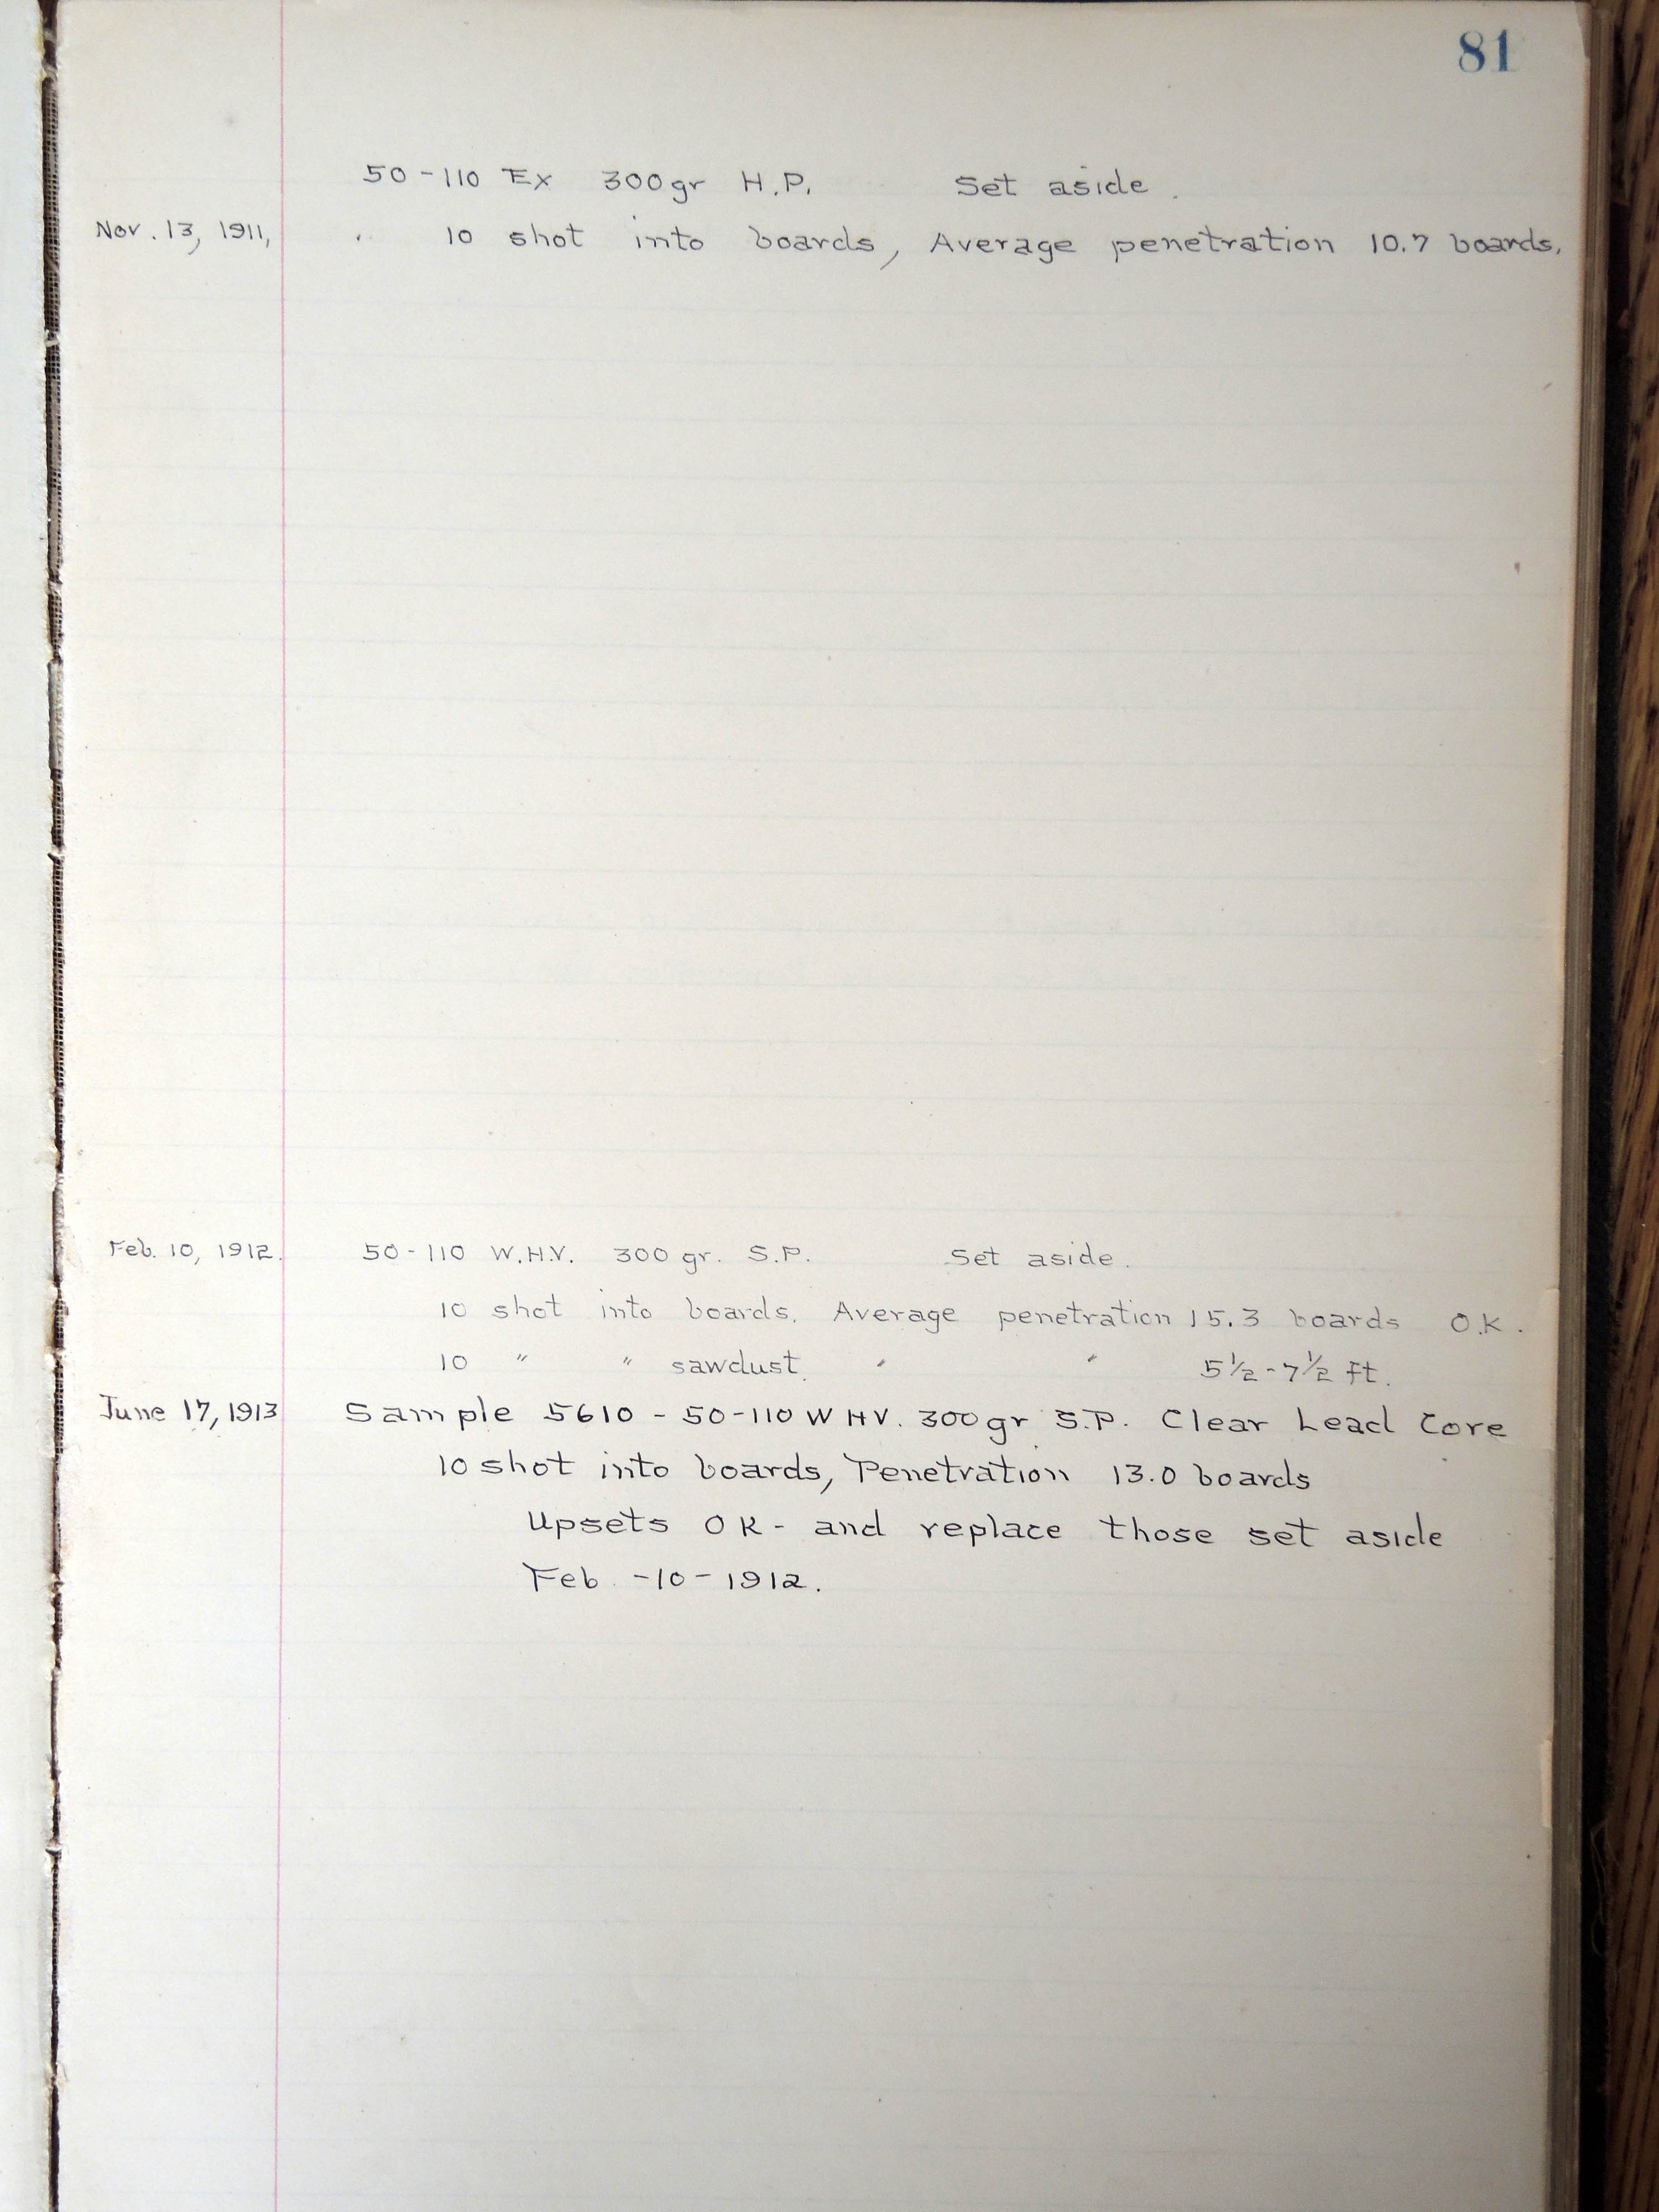 81
50-110 Ex 300gr H.P. Set aside.
Nov. 13, 1911, 10 shot into boards, Average penetration 10.7 boards.
Feb. 10, 1912. 50-110 W.H.V. 300 gr. S.P. Set aside.
10 shot into boards. Average penetration 15.3 boards O.K.
10 " " sawdust. " " 5½-7½ ft.
June 17, 1913 Sample 5610 - 50-110 W HV. 300gr S.P. Clear Lead Core
10 shot into boards, Penetration 13.0 boards
Upsets OK - and replace those set aside
Feb -10-1912.